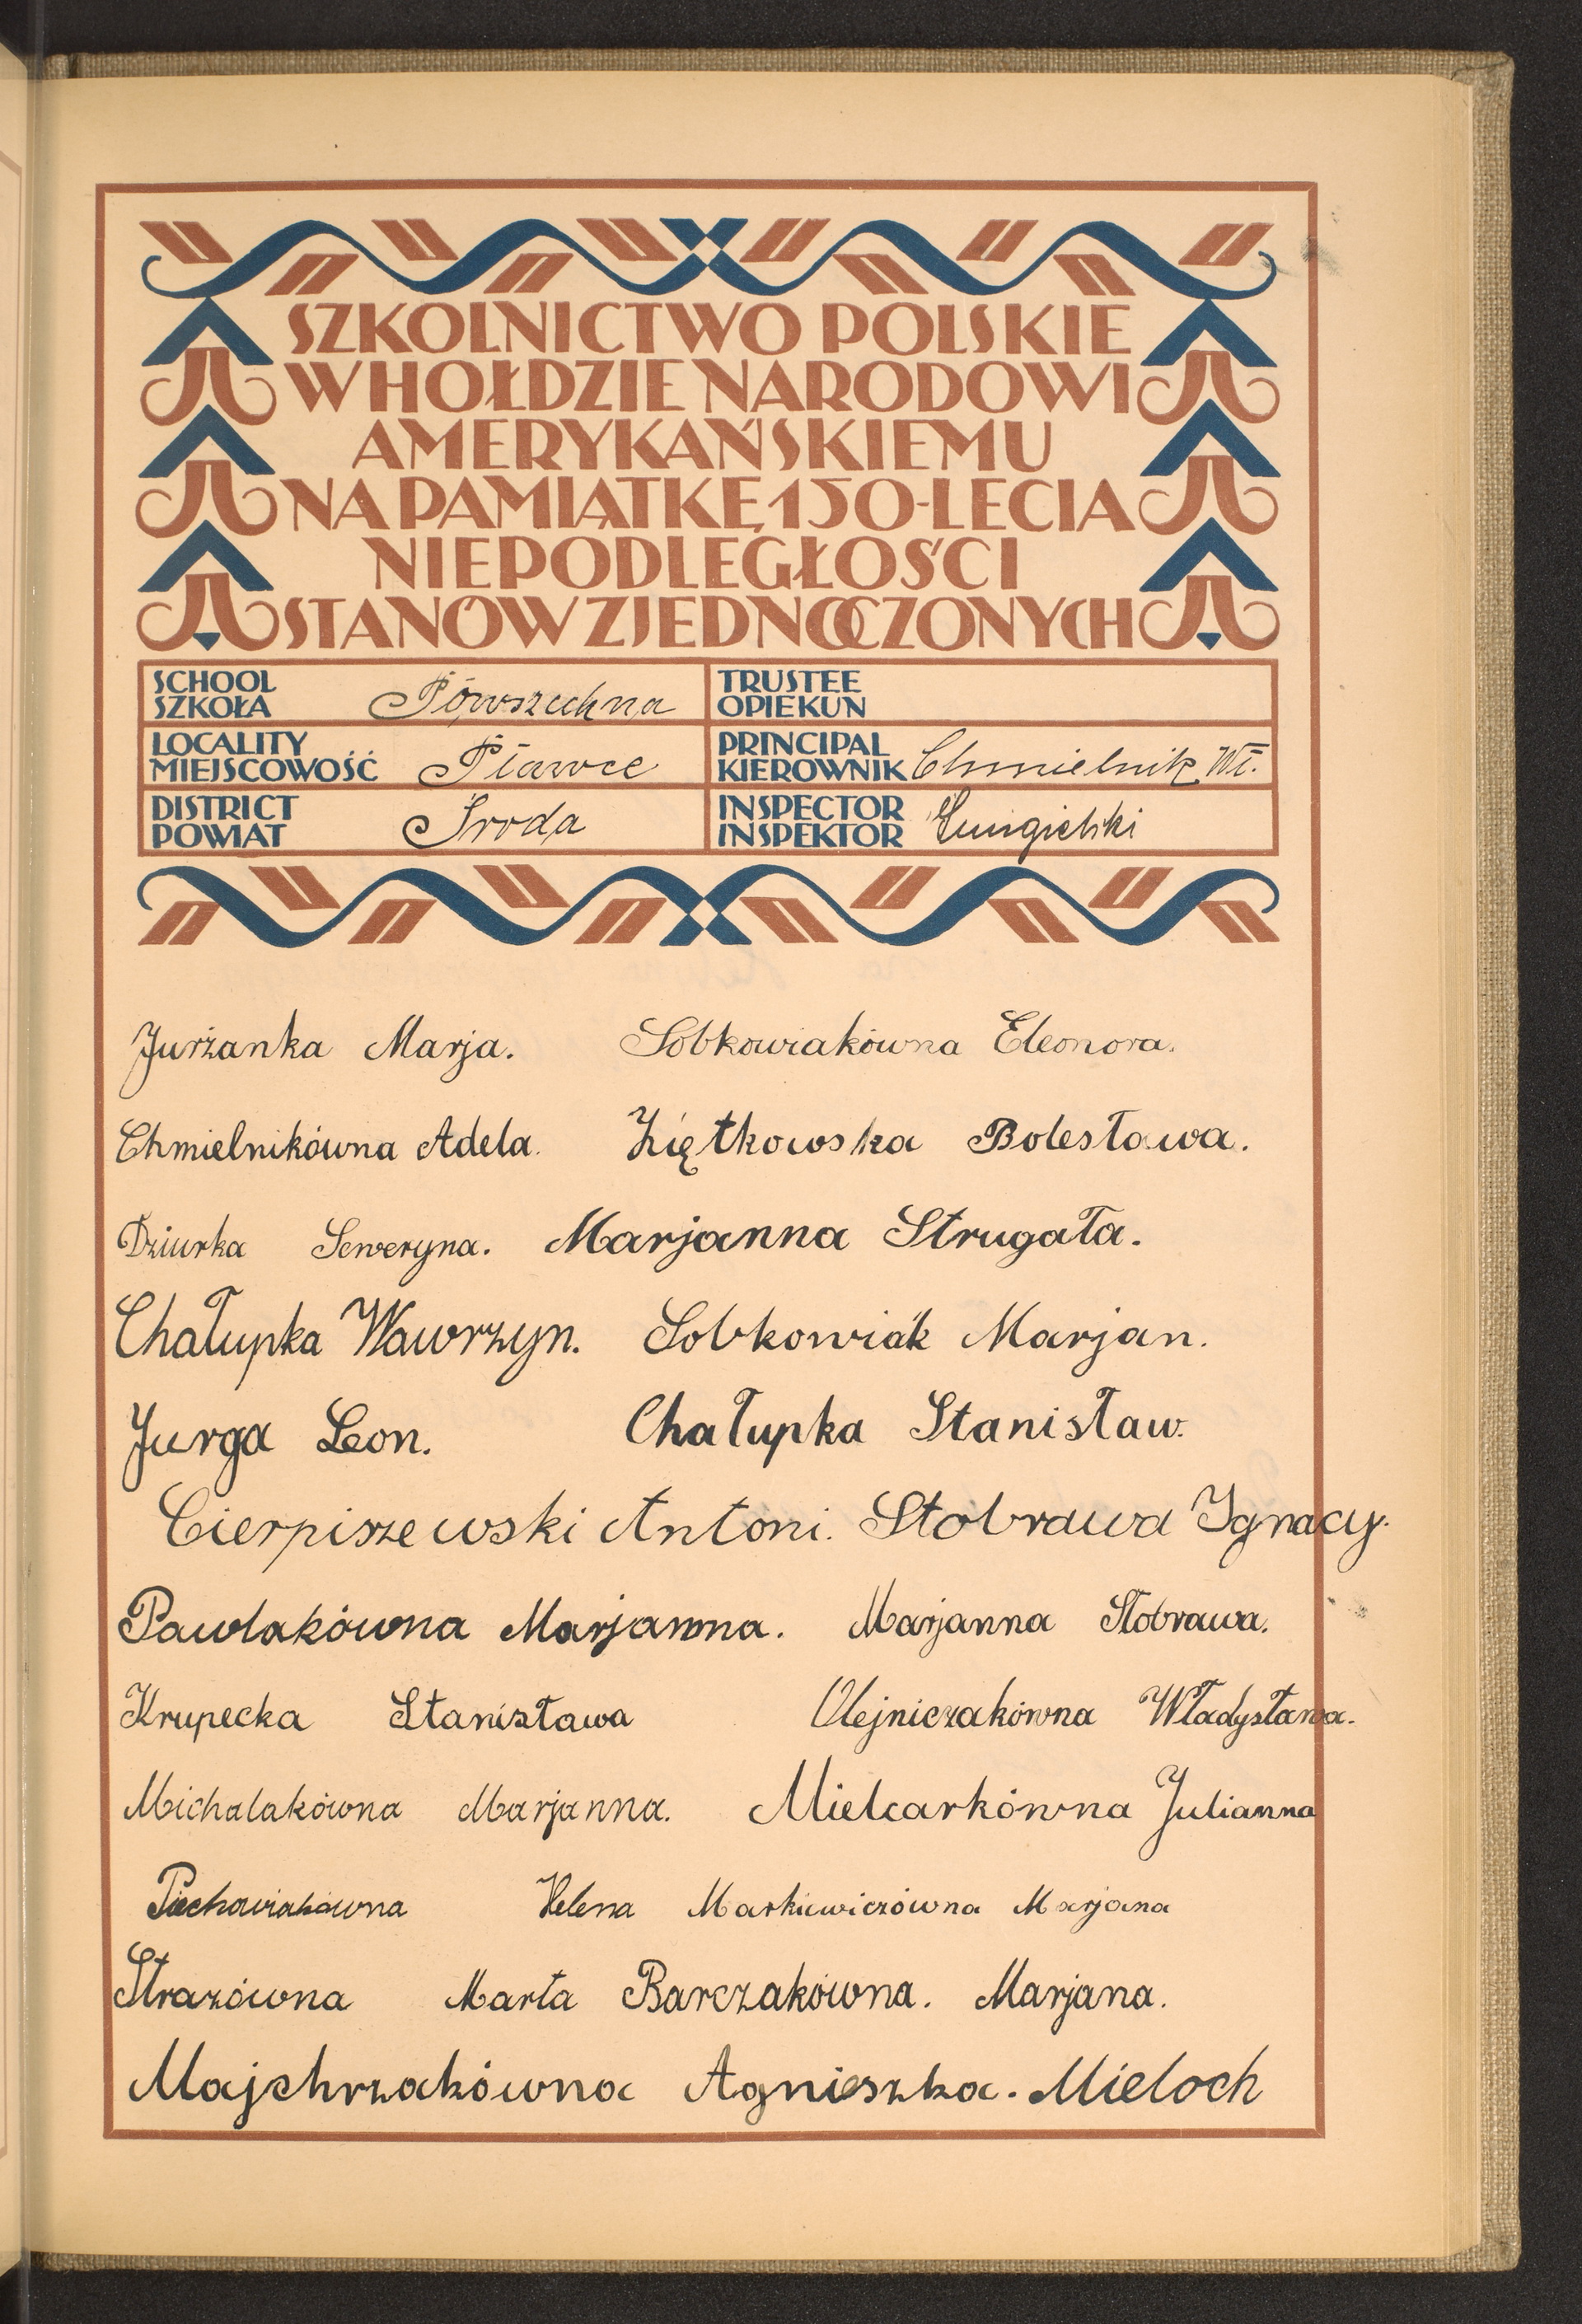 SZKOLNICTWO POLSKIE
W HOŁDZIE NARODOWI
AMERYKAŃSKIEMU
NA PAMIĄTKĘ 150-LECIA
NIEPODLEGŁOŚCI
STANÓW ZJEDNOCZONYCH
SCHOOL
SZKOŁA Powszechna
TRUSTEE
OPIEKUN
LOCALITY
MIEJSCOWOŚĆ Pławce
PRINCIPAL
KIEROWNIK Chmielnik Wł.
DISTRICT
POWIAT Środa
INSPECTOR
INSPEKTOR
Jurżanka Marja. Sobkowiakówna Eleonora.
Chmielnikówna Adela. Ziętkowska Bolesława.
Dziurka Seweryna. Marjanna Strugała.
Chałupka Wawrzyn. Sobkowiak Marjan.
Jurga Leon. Chałupka Stanisław.
Cierpiszewski Antoni. Stobrawa Ignacy.
Pawlakówna Marjanna. Marjanna Stobrawa.
Krupecka Stanisława Olejniczakówna Władysława.
Michalakówna Marjanna. Mielcarkówna Julianna
Piechowiakówna Helena Markiewiczówna Marjana
Strazówna Marta Barczakówna. Marjana.
Majchrzakówna Agnieszka. Mieloch